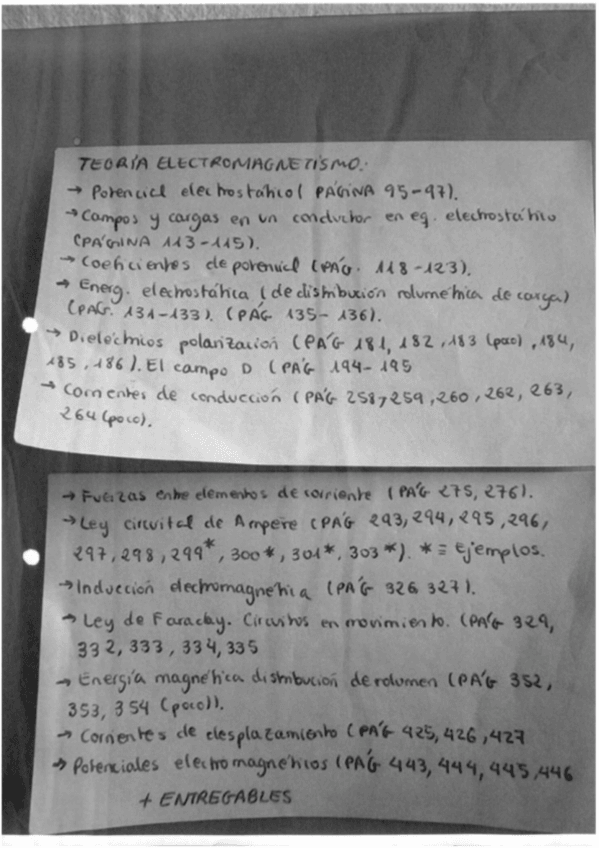 TEORÍA ELECTROMAGNETISMO.
→ Potencial electrostático ( PÁGINA 95-97).
→ Campos y cargas en un conductor en eq. electrostático
(PÁGINA 113-115).
→ Coeficientes de potencial (PÁG. 118-123).
→ Energ. electrostática ( de distribución volumétrica de carga)
(PÁG. 131-133). (PÁG 135-136).
→ Dieléctricos polarización (PÁG 181, 182, 183 (poco), 184,
185, 186). El campo D (PÁG 194-195
→ Corrientes de conducción (PÁG 258, 259, 260, 262, 263,
264 (poco).
→ Fuerzas entre elementos de corriente (PÁG 275, 276).
→ Ley circuital de Ampere (PÁG 293, 294, 295, 296,
297, 298, 299*, 300*, 301*, 303*). * ≡ Ejemplos.
→ Inducción electromagnética (PÁG 326, 327).
→ Ley de Faraday. Circuitos en movimiento. (PÁG 329,
332, 333, 334, 335
→ Energía magnética distribución de volumen (PÁG 352,
353, 354 (poco)).
→ Corrientes de desplazamiento (PÁG 425, 426, 427
→ Potenciales electromagnéticos (PÁG 443, 444, 445, 446
+ ENTREGABLES